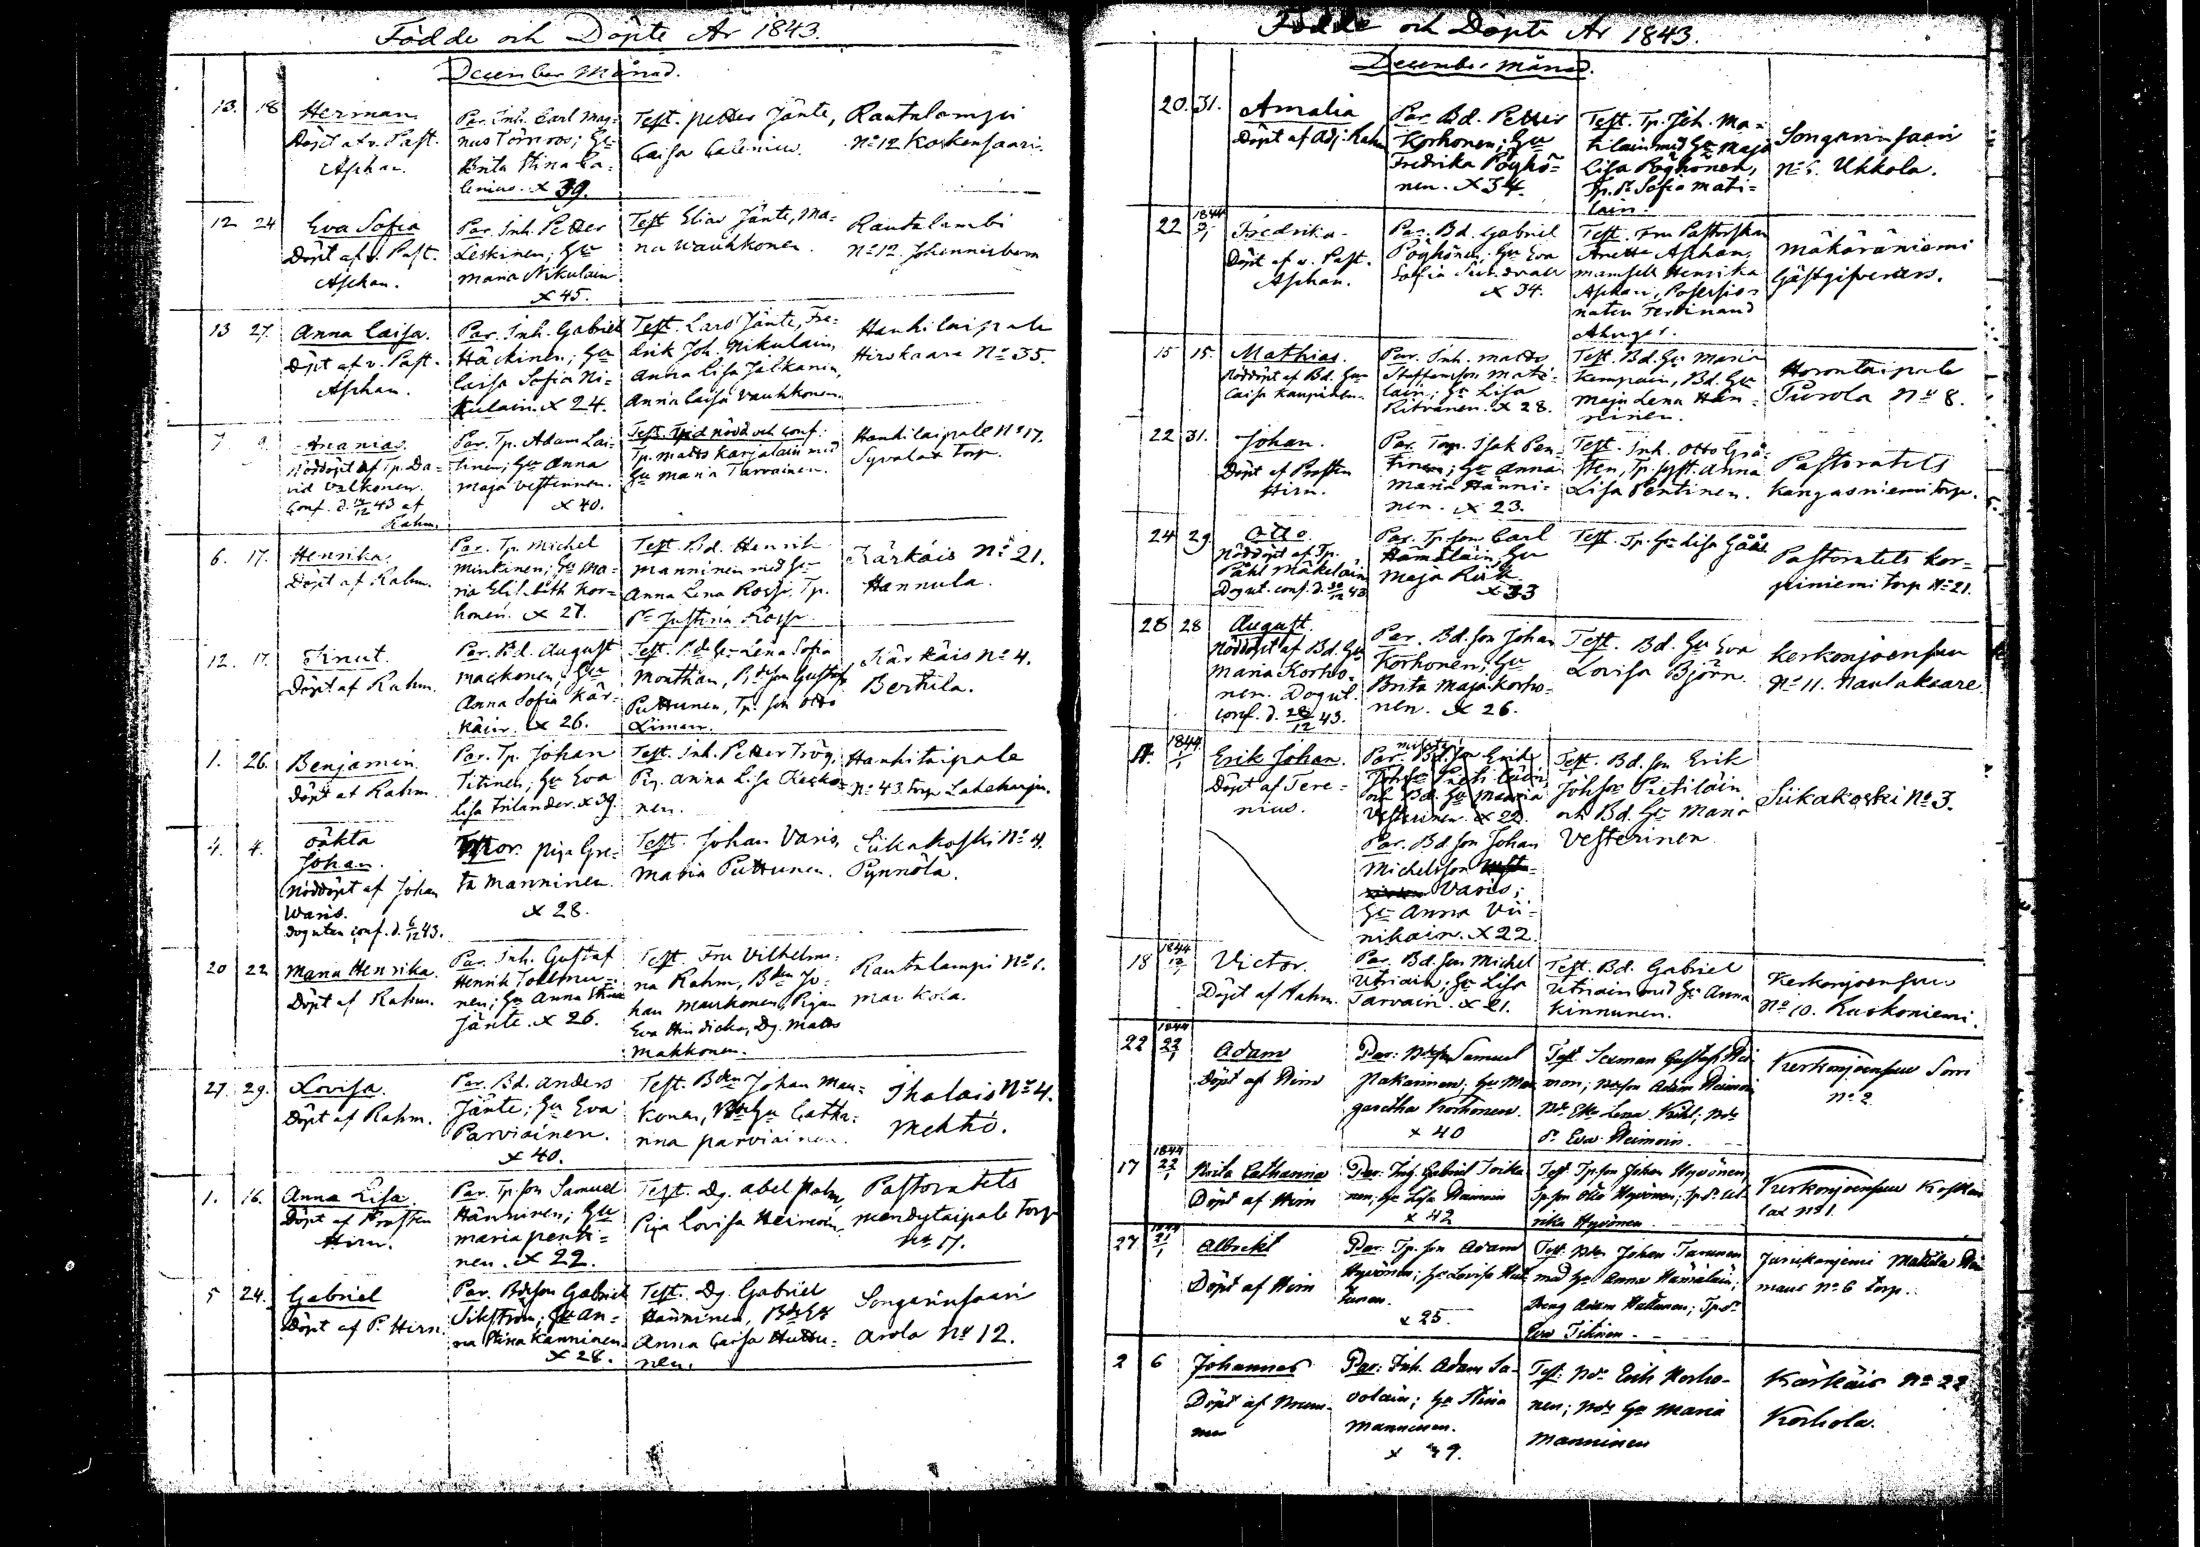 Födde och Döpte År 1843.
December Månad.
13. 18 Herman.
Döpt af v. Past.
Asphan.
Par. Inh. Carl Mag=
nus Törnroos; Hu
Brita Stina Ca=
lenius. x 39.
Test. Petter Jänte,
Caisa Calenius.
Rautalampi
No 12 Koskensaari.
12 24 Eva Sofia
Döpt af v. Past.
Asphan.
Par. Inh. Petter
Leskinen; Hu
Maria Nikulain
x 45.
Test Elias Jänte, Ma=
ria Wauhkonen.
Rautalambi
No 12.
13 27. Anna Caisa.
Döpt af v. Past.
Asphan.
Par. Inh. Gabriel
Häckinen; Hu
Caisa Sofia Ni=
kulain. x 24.
Test. Lars Jänte, Fre=
drik Joh. Nikulain,
Anna Lisa Jalkanen,
Anna Caisa Vauhkonen.
Hankitaipale
Hirskaara No 35.
7 9 Ananias.
Nöddöpt af Tp. Da=
vid Valkonen.
Conf. d. 12/12 43 af
Rahm.
Par. Tp. Adam Lai=
tinen; Hu Anna
Maja Vesterinen.
x 40.
Test. Tp. d nöd och Conf.
Tp. Matts Karjalain med
Hu Maria Tarvainen.
Hankitaipale No 17.
Syvälax Torp.
6. 17. Henrika.
Döpt af Rahm.
Par. Tp. Michel
Minkinen; Hu Ma=
ria Elisabeth Kor=
honen. x 27.
Test. Bd. Henrik
Manninen med Hu
Anna Lena Rossi, Tp.
Dr Justina Rossi.
Kärkäis No 21.
Hannula.
12. 17. Knut.
Döpt af Rahm.
Par. Bd. August
Mackonen; Hu
Anna Sofia Kär=
käin. x 26.
Test. Bds Hu Lena Sofia
Monthan, Bdeson Gustaf
Puttunen, Tp. son Otto
Liman.
Kärkäis No 4.
Berkila.
1. 26. Benjamin.
Döpt af Rahm.
Par. Tp. Johan
Titinen; Hu Eva
Lisa Frilander. x 39.
Test. Inh. Petter Trög,
Pig. Anna Lisa Kecko=
nen.
Hankitaipale
No 43. torp Lakeharju.
4. 4. oäkta
Johan.
Nöddöpt af Johan
Waris.
Doguten conf. d. 6/12 43.
Mor. Piga Gre=
ta Manninen.
x 28.
Test. Johan Varis,
Maria Puttunen.
Siikakoski No 4.
Pynnölä.
20 22 Maria Henrika.
Döpt af Rahm.
Par. Inh. Gustaf
Henrik Tollmu=
nen; Hu Anna Stina
Jänte. x 26.
Test. Fru Vilhelmi=
na Rahm, Bden Jo=
han Maukonen, Pigan
Eva Hindicka, Dg. Matts
Makkonen.
Rautalampi No 1.
Markola.
27. 29. Lovisa.
Döpt af Rahm.
Par. Bd. Anders
Jänte; Hu Eva
Parviainen.
x 40.
Test. Bden Johan Mau=
konen, Bds Hu Catha=
rina Parviainen.
Ihalais No 4.
Mehtiö.
1. 16. Anna Lisa.
Döpt af Prosten
Hirn.
Par. Tp. son Samuel
Hänninen; Hu
Maria Penti=
nen. x 22.
Test. Dg. Abel Palm,
Piga Lovisa Heimoin.
Pastoratets
Mendytaipale torp
No 17.
5 24. Gabriel
Döpt af P. Hirn.
Par. Bdeson Gabriel
Sikström; Hu An=
na Stina Kanninen.
x 28.
Test. Dg. Gabriel
Hänninen, Bds Hu
Anna Caisa Huttu=
nen.
Songarinsaari
Arola No 12.
Födde och Döpte År 1843.
December Månad.
20. 31. Amalia
Döpt af Adj. Rahm
Par. Bd. Petter
Korhonen; Hu
Fredrika Pöyhö=
nen. x 34.
Test. Tp. Joh. Ma=
tilain med Hu Maja
Lisa Pöyhönen,
Tp. Dr Sofia Mati=
lain.
Songarinsaari
No 5. Ukkola.
22 1844 Fredrika.
Döpt af v. Past.
Asphan.
Par. Bd. Gabriel
Pöyhönen; Hu Eva
Sofia Sundvall
x 34.
Test. Fru Pastorskan
Anette Asphan,
Mamsell Henrika
Asphan, Possessio=
naten Ferdinand
Ahnger.
Mäkäräniemi
Gästgifveri.
15 15. Mathias.
Nöddöpt af Bd. Hu
Caisa Kaupinen.
Par. Inh. Matts
Staffansson Mati=
lain; Hu Lisa
Ritvanen. x 28.
Test. Bd. Hu Maria
Kempain, Bd. Hu
Maja Lena Hän=
ninen.
Horontaipale
Purola No 8.
22 31. Johan.
Döpt af Prosten
Hirn.
Par. Torp. Isak Pen=
tinen; Hu Anna
Maria Hänni=
nen. x 23.
Test. Inh. Otto Grå=
sten, Tp. syst. Anna
Lisa Pentinen.
Pastoratets
Kangasniemi torp.
24 29 Otto.
Nöddöpt af Tp.
Påhl Mäkeläin
Dogut. conf. d. 30/12 43
Par. Tp. son Carl
Hämäläin; Hu
Maja Risk
x 33
Test. Tp. Hu Lisa Gäås
Pastoratets Kor=
piniemi torp No 21.
28 28 August.
Nöddöpt af Bd. Hu
Maria Korho=
nen. Dogut.
conf. d. 28/12 43.
Par. Bd. son Johan
Korhonen; Hu
Brita Maja Korho=
nen. x 26.
Test. Bd. Hu Eva
Lovisa Björn.
Kerkonjoensuu
No 11. Naulakaare
11. 1844 Erik Johan.
Döpt af Tere=
nius.
Par. Bd. son Erik
Johsson Pietiläin
och Bd. Hu Maria
Vesterinen. x 22.
Par. Bd. son Johan
Michelsson
Varis;
Hu Anna Vii=
nikain. x 22.
Test. Bd. son Erik
Johsson Pietiläin
och Bd. Hu Maria
Vesterinen.
Siikakoski No 3.
18 1844 Victor.
Döpt af Rahm.
Par. Bd. son Michel
Utriain; Hu Lisa
Tarvain. x 21.
Test. Bd. Gabriel
Utriain med Hu Anna
Kinnunen.
Kerkonjoensuu
No 10. Ruokoniemi.
22 1844 22/1 Adam
Döpt af Hirn
Par: Bdeson Samuel
Pakarinen; Hu Mar
garetha Korhonen.
x 40
Test. Sexman Gustaf Hei
mon; Bdeson Adam Heimon
Bds Eka Lena Kihl; Bds
Dr Eva Heimoin.
Kerkonjoensuu Sorri
No 2
17 1844 22/1 Brita Catharina
Döpt af Hirn
Par: Inh. Gabriel Toika
nen; Hu Lisa Heimoin
x 42
Test Tp son Johan Hyvönen,
Tp son Otto Hyvönen; Tp Dr Ul=
rika Hyvönen
Kerkonjoensuu
No 1.
27 1844 21/1 Albrekt
Döpt af Hirn
Par: Tp. son Adam
Hyvönen; Hu Lovisa Hut
tunen.
x 25.
Test. Bden Johan Tarvonen
med Hu Anna Hämäläin,
Dreng Adam Hattunen; Tp Dr
Eva Tilinen.
Jurickaniemi Mattila
No 6 torp.
2 6 Johannes
Döpt af Brum=
mer
Par: Inh. Adam Sa=
volain; Hu Stina
Manninen.
x 29.
Test: Bde Erik Korho=
nen; Bds Hu Maria
Manninen
Kärkäis No 22
Korhola.